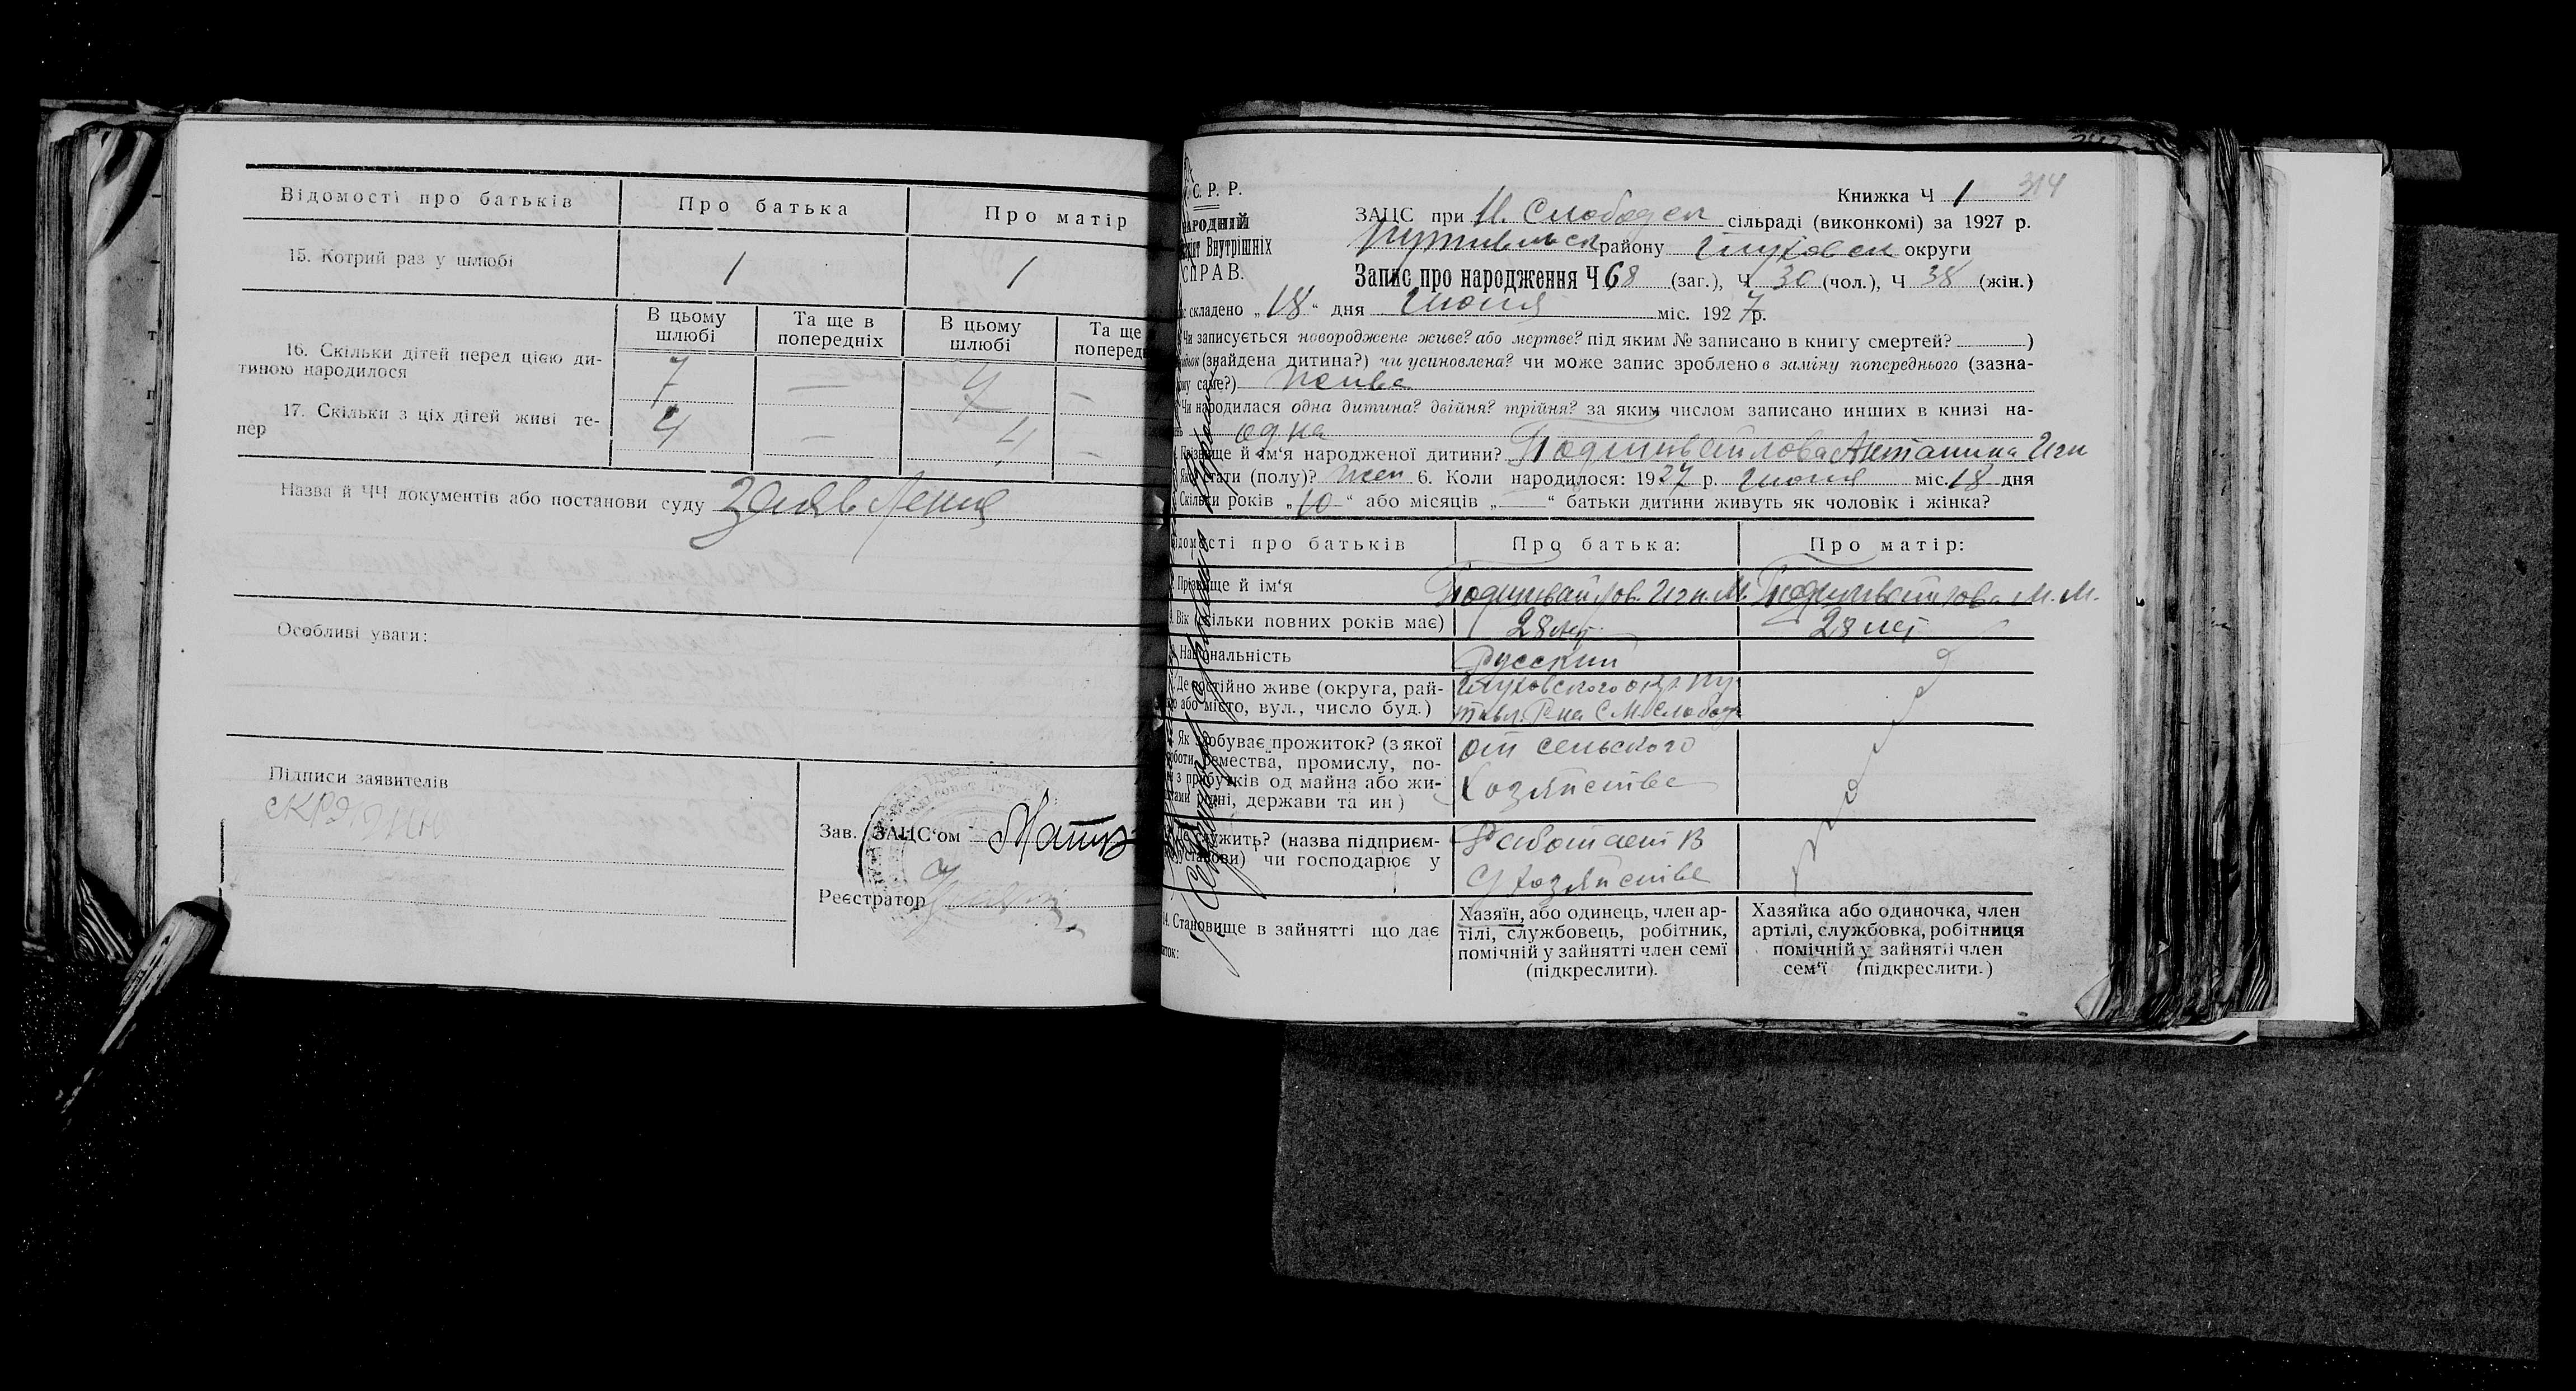 Відомості про батьків Про батька Про матір
15. Котрий раз у шлюбі 1 1
В цьому шлюбі Та ще в попередніх В цьому шлюбі Та ще
16. Скільки дітей перед цією ди-
тиною народилося 7 — 7 —
17. Скільки з ціх дітей живі те-
пер 4 — 4 —
Назва й ЧЧ документів або постанови суду Заявления
Особливі уваги:
Підписи заявителів
Зав. ЗАЦС‘ом
Реєстратор
С. Р. Р.
СПРАВ.
Книжка Ч 1 314
ЗАЦС при М. Слободск сільраді (виконкомі) за 1927 р.
Путивльск району Глуховск округи
Запис про народження Ч 68 (заг.), Ч 30 (чол.), Ч 38 (жін.)
складено „18“ дня Июня міс. 1927 р.
Чи записується новороджене живе? або мертве? під яким № записано в книгу смертей? )
(знайдена дитина?) чи усиновлена? чи може запис зроблено в заміну попереднього (зазна-
саме?)
Чи народилася одна дитина? двійня? трійня? за яким числом записано инших в книзі на-
одна
Прізвище й ім‘я народженої дитини? Подшивайлова Антанина Игн
стати (полу)? жен 6. Коли народилося: 1927 р. Июня міс. 18 дня
Скільки років „10“ або місяців „—“ батьки дитини живуть як чоловік і жінка?
Відомості про батьків Про батька: Про матір:
Прізвище й ім‘я Подшивайлов Игн. М. Подшивайлова М. М.
9. Вік (скільки повних років має) 28 лет 28 лет
Національність Русский
Де постійно живе (округа, рай- Глуховского окр. Пу
або місто, вул., число буд.) тивл. Р-на С М. Слобод
Як здобуває прожиток? (з якої от сельского
роботи, ремества, промислу, по-
з прибутків од майна або жи- Хозяйстве
рідні, держави та ин)
служить? (назва підприєм- Работает в
установи) чи господарює у С хозяйстве
14. Становище в зайнятті що дає
Хазяїн, або одинець, член ар-
тілі, службовець, робітник,
помічній у зайнятті член семї
(підкреслити).
Хазяйка або одиночка, член
артілі, службовка, робітниця
помічній у зайнятії член
сем‘ї (підкреслити.)